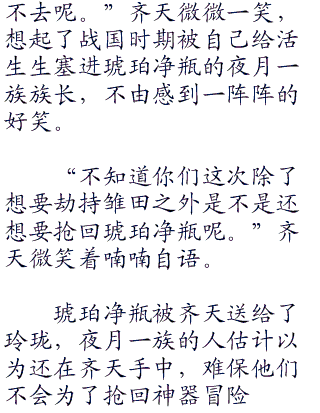 不去呢。”齐天微微一笑，
想起了战国时期被自己给活
生生塞进琥珀净瓶的夜月一
族族长，不由感到一阵阵的
好笑。
“不知道你们这次除了
想要劫持雏田之外是不是还
想要抢回琥珀净瓶呢。”齐
天微笑着喃喃自语。
琥珀净瓶被齐天送给了
玲珑，夜月一族的人估计以
为还在齐天手中，难保他们
不会为了抢回神器冒险